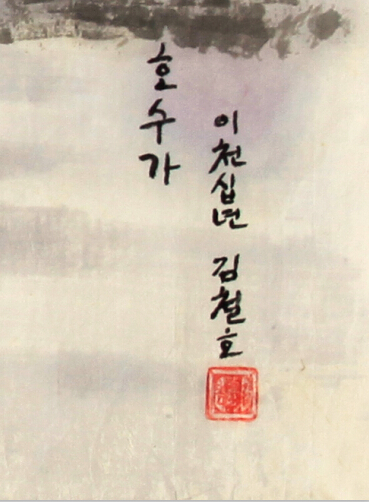 호수가
이천십년 김철호